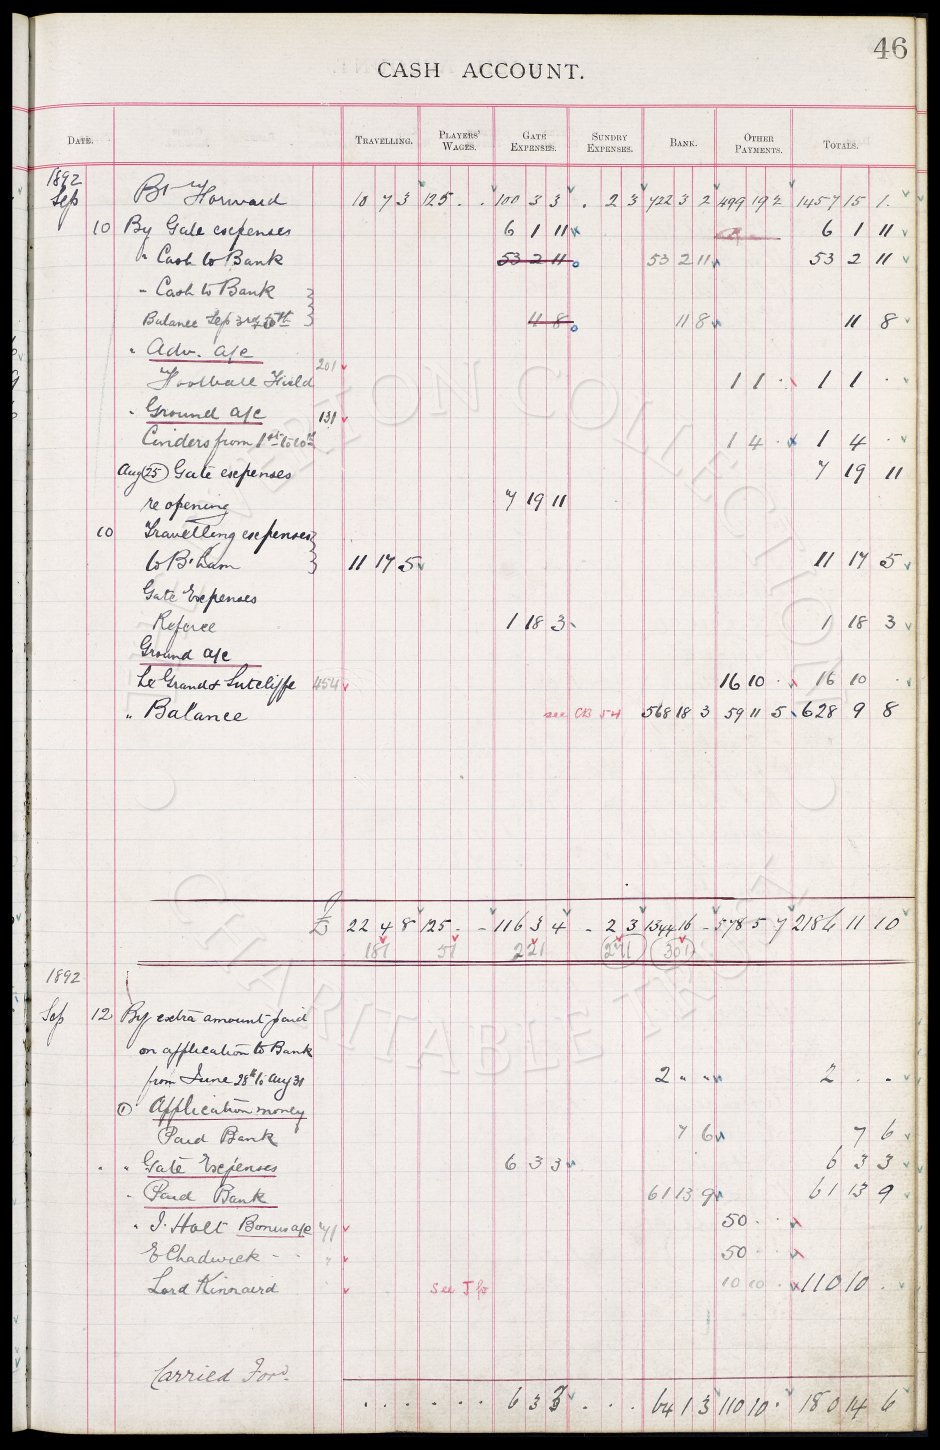 46
CASH ACCOUNT.
DATE. TRAVELLING. PLAYERS' WAGES. GATE EXPENSES. SUNDRY EXPENSES. BANK. OTHER PAYMENTS. TOTALS.
1892
Sep Bt Forward 10 7 3 125 . . 100 3 3 . 2 3 722 3 2 499 19 2 1457 15 1
10 By Gate expenses 6 1 11 6 1 11
" Cash to Bank 53 2 11 53 2 11 53 2 11
" Cash to Bank
Balance Sep 3rd to 10th 4 8 11 8 11 8
" Adv. a/c 201
Football Field 1 1 . 1 1 .
" Ground a/c 131
Cinders from 1st to 10th 1 4 . 1 4 .
Aug 25 Gate expenses 7 19 11
re opening 7 19 11
10 Travelling expenses
to B'ham 11 17 5 11 17 5
Gate Expenses
Referee 1 18 3 1 18 3
Ground a/c
Le Grand & Sutcliffe 454 16 10 . 16 10 .
" Balance see CB 54 568 18 3 59 11 5 628 9 8
£ 22 4 8 125 . - 116 3 4 - 2 3 1344 16 - 578 5 7 2186 11 10
181 51 221 241 301
1892
Sep 12 By extra amount paid
on application to Bank
from June 28th to Aug 31 2 " " 2 . .
① Application money
Paid Bank 7 6 7 6
" " Gate Expenses 6 3 3 6 3 3
" Paid Bank 61 13 9 61 13 9
" J. Holt Bonus a/c 71 50 . .
E Chadwick - - " 50 . .
Lord Kinnaird See J/o 10 10 . 110 10 .
Carried Ford.
. . . . . . 6 3 3 . . . 64 1 3 110 10 . 180 14 6
EVERTON COLLECTION
CHARITABLE TRUST